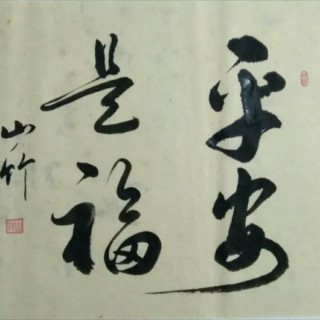 平安
是福
山竹